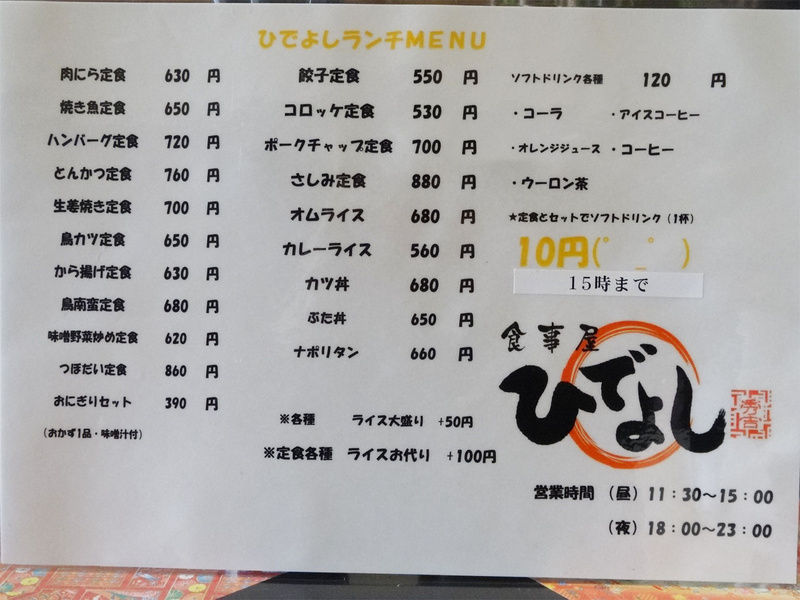 ひでよしランチMENU
肉にら定食 630 円
焼き魚定食 650 円
ハンバーグ定食 720 円
とんかつ定食 760 円
生姜焼き定食 700 円
鳥カツ定食 650 円
から揚げ定食 630 円
鳥南蛮定食 680 円
味噌野菜炒め定食 620 円
つぼだい定食 860 円
おにぎりセット 390 円
(おかず1品・味噌汁付)
餃子定食 550 円
コロッケ定食 530 円
ポークチャップ定食 700 円
さしみ定食 880 円
オムライス 680 円
カレーライス 560 円
カツ丼 680 円
ぶた丼 650 円
ナポリタン 660 円
※各種 ライス大盛り +50円
※定食各種 ライスお代り +100円
ソフトドリンク各種 120 円
・コーラ ・アイスコーヒー
・オレンジジュース ・コーヒー
・ウーロン茶
★定食とセットでソフトドリンク(1杯)
10円(゜_゜)
15時まで
食事屋
ひでよし
秀吉
営業時間 (昼) 11:30~15:00
(夜) 18:00~23:00